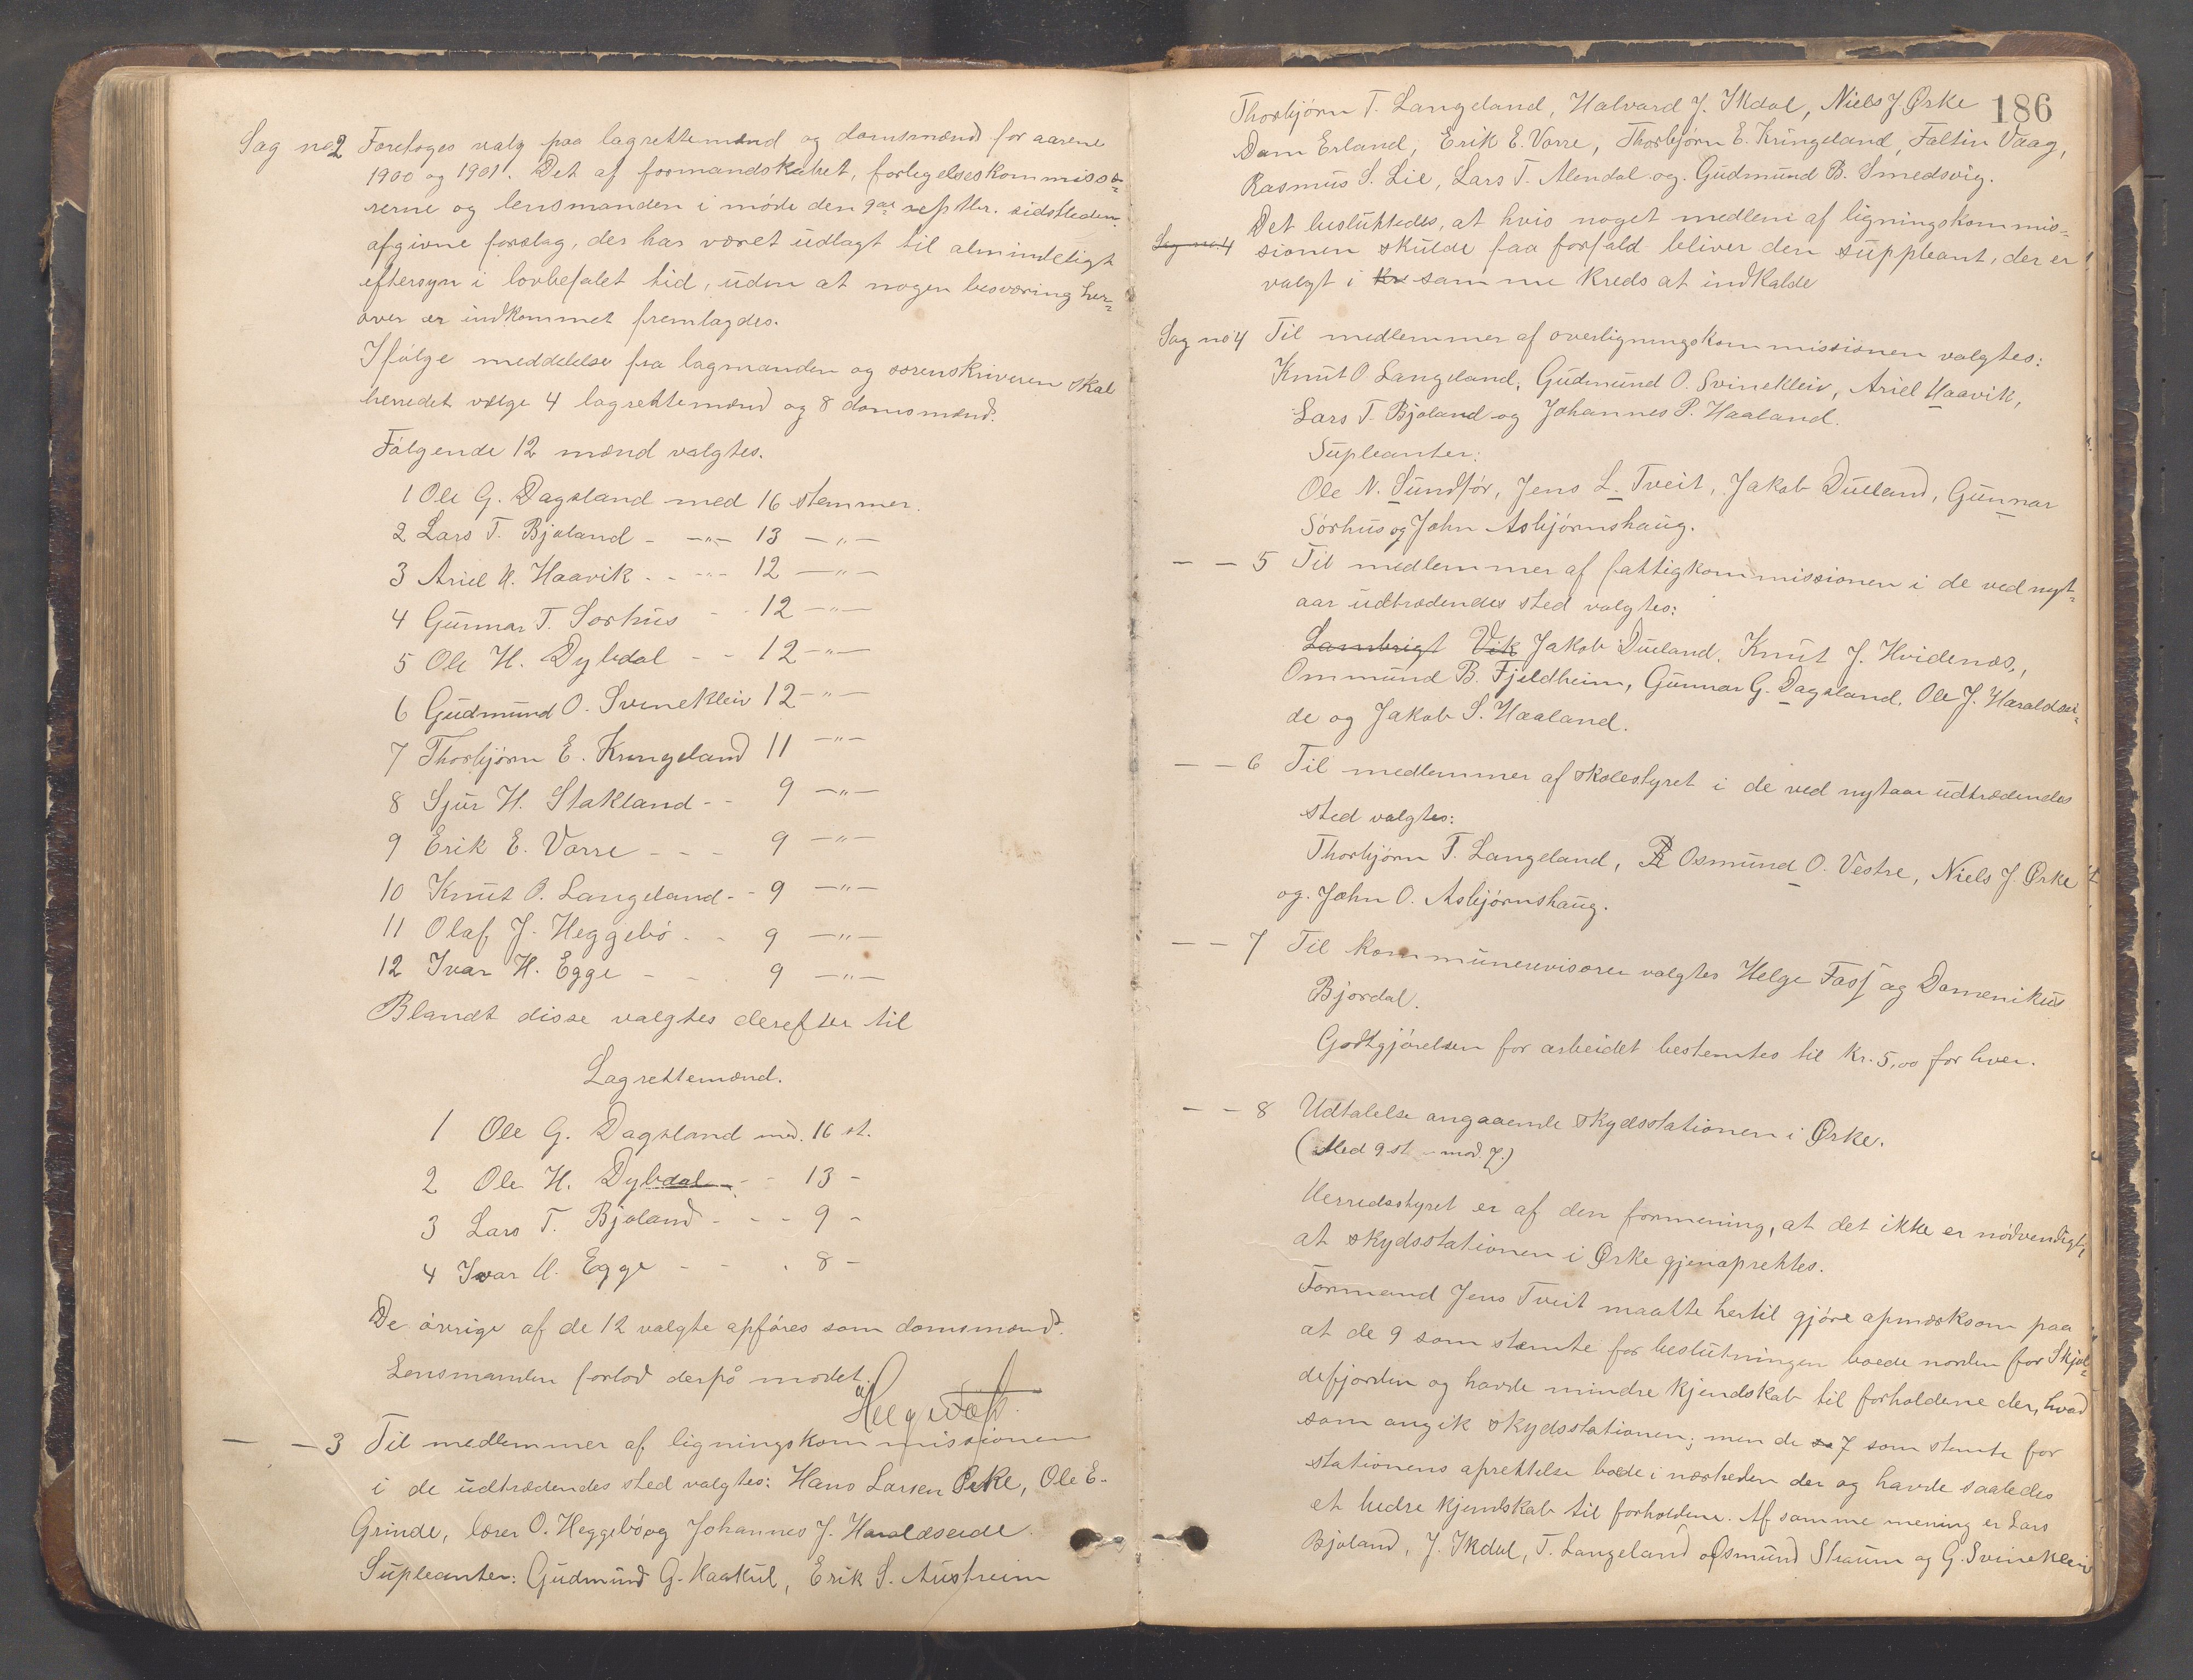 Sag no 2 Foretoges valg paa lagrettemænd og domsmænd for aarene
1900 og 1901. Det af formandskabet, forligelseskommissæ-
rerne og lensmanden i møde den 9de septbr. sidstleden
afgivne forslag, der har været udlagt til almindeligt
eftersyn i lovbefalet tid, uden at nogen besværing her-
over er indkommet fremlagdes.
Ifølge meddelelse fra lagmanden og sorenskriveren skal
herredet vælge 4 lagrettemænd og 8 domsmænd.
Følgende 12 mænd valgtes.
1 Ole G. Dagsland med 16 stemmer.
2 Lars T. Bjoland - -"- 13 -"-
3 Ariel H. Haavik - - -"- 12 -"-
4 Gunnar T. Sørhus - - 12 -"-
5 Ole H. Dybdal - - 12 -"-
6 Gudmund O. Svinekleiv 12 -"-
7 Thorbjørn E. Kringeland 11 -"-
8 Sjur H. Stakland - - 9 -"-
9 Erik E. Vorre - - - 9 -"-
10 Knut O. Langeland - - 9 -"-
11 Olaf J. Heggebø - - 9 -"-
12 Ivar H. Egge - - 9 -"-
Blandt disse valgtes derefter til
Lagrettemænd.
1 Ole G. Dagsland med 16 st.
2 Ole H. Dybdal - - 13 -
3 Lars T. Bjoland - - - 9 -
4 Ivar H. Egge - - - 8 -
De øvrige af de 12 valgte opføres som domsmænd.
Lensmanden forlod derpå mødet.
Helge Fæø
- - 3 Til medlemmer af ligningskommissionen
i de udtrædendes sted valgtes: Hans Larsen Ørke, Ole E.
Grinde, lærer O. Heggebø og Johannes J. Haraldseide.
Supleanter: Gudmund G. Haakul, Erik S. Austreim
186
Thorbjørn T. Langeland, Halvard J. Ikdal, Niels J. Ørke
Dam Erland, Erik E. Vorre, Thorbjørn E. Kringeland, Faltin Vaag,
Rasmus S. Lie, Lars T. Alendal og Gudmund B. Smedsvig.
Det besluttedes, at hvis noget medlem af ligningskommis-
Sag no 4 sionen skulde faa forfald bliver den suppleant, der er
valgt i Kr samme kreds at indkalde
Sag no 4 Til medlemmer af overligningskommissionen valgtes:
Knut O Langeland, Gudmund O. Svinekleiv, Ariel Haavik,
Lars T. Bjoland og Johannes P. Haaland.
Supleanter:
Ole N. Sundfør, Jens L. Tveit, Jakob Dueland, Gunnar
Sørhus og John Asbjørnshaug.
- - 5 Til medlemmer af fattigkommissionen i de ved nyt-
aar udtrædendes sted valgtes:
Lambrigt Vik Jakob Dueland, Knut J. Hvidenæs,
Ommund B. Fjeldheim, Gunnar G. Dagsland, Ole J. Haraldsei-
de og Jakob S. Haaland.
- - 6 Til medlemmer af skolestyret i de ved nytaar udtrædendes
sted valgtes:
Thorbjørn T. Langeland, Osmund O. Vestre, Niels J. Ørke
og John O. Asbjørnshaug.
- - 7 Til kommunerevisorer valgtes Helge Fæø og Domenikus
Bjordal.
Godtgjørelsen for arbeidet bestemtes til kr. 5,00 for hver.
- - 8 Udtalelse angaaende skydsstationen i Ørke.
(Med 9 st - mod. 7.)
Herredsstyret er af den formening, at det ikke er nødvendigt,
at skydsstationen i Ørke gjenoprettes.
Formand Jens Tveit maatte hertil gjøre opmærksom paa
at de 9 som stemte for beslutningen boede norden for Skjol-
defjorden og havde mindre kjendskab til forholdene der, hvad
som angik skydsstationen; men de so 7 som stemte for
stationens oprettelse boede i nærheden der og havde saaledes
et bedre kjendskab til forholdene. Af samme mening er Lars
Bjoland, J. Ikdal, T. Langeland Osmund Straum og G. Svinekleiv